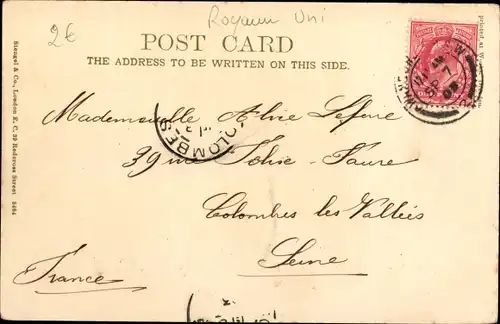 2€
Royaum Uni
POST CARD
THE ADDRESS TO BE WRITTEN ON THIS SIDE.
Stengel & Co., London E. C. 39 Redcross Street 5464
printed at
Mademoiselle Alvie Lefevre
39 rue Faure
COLOMBES
Colombes les Vallées
Seine
France